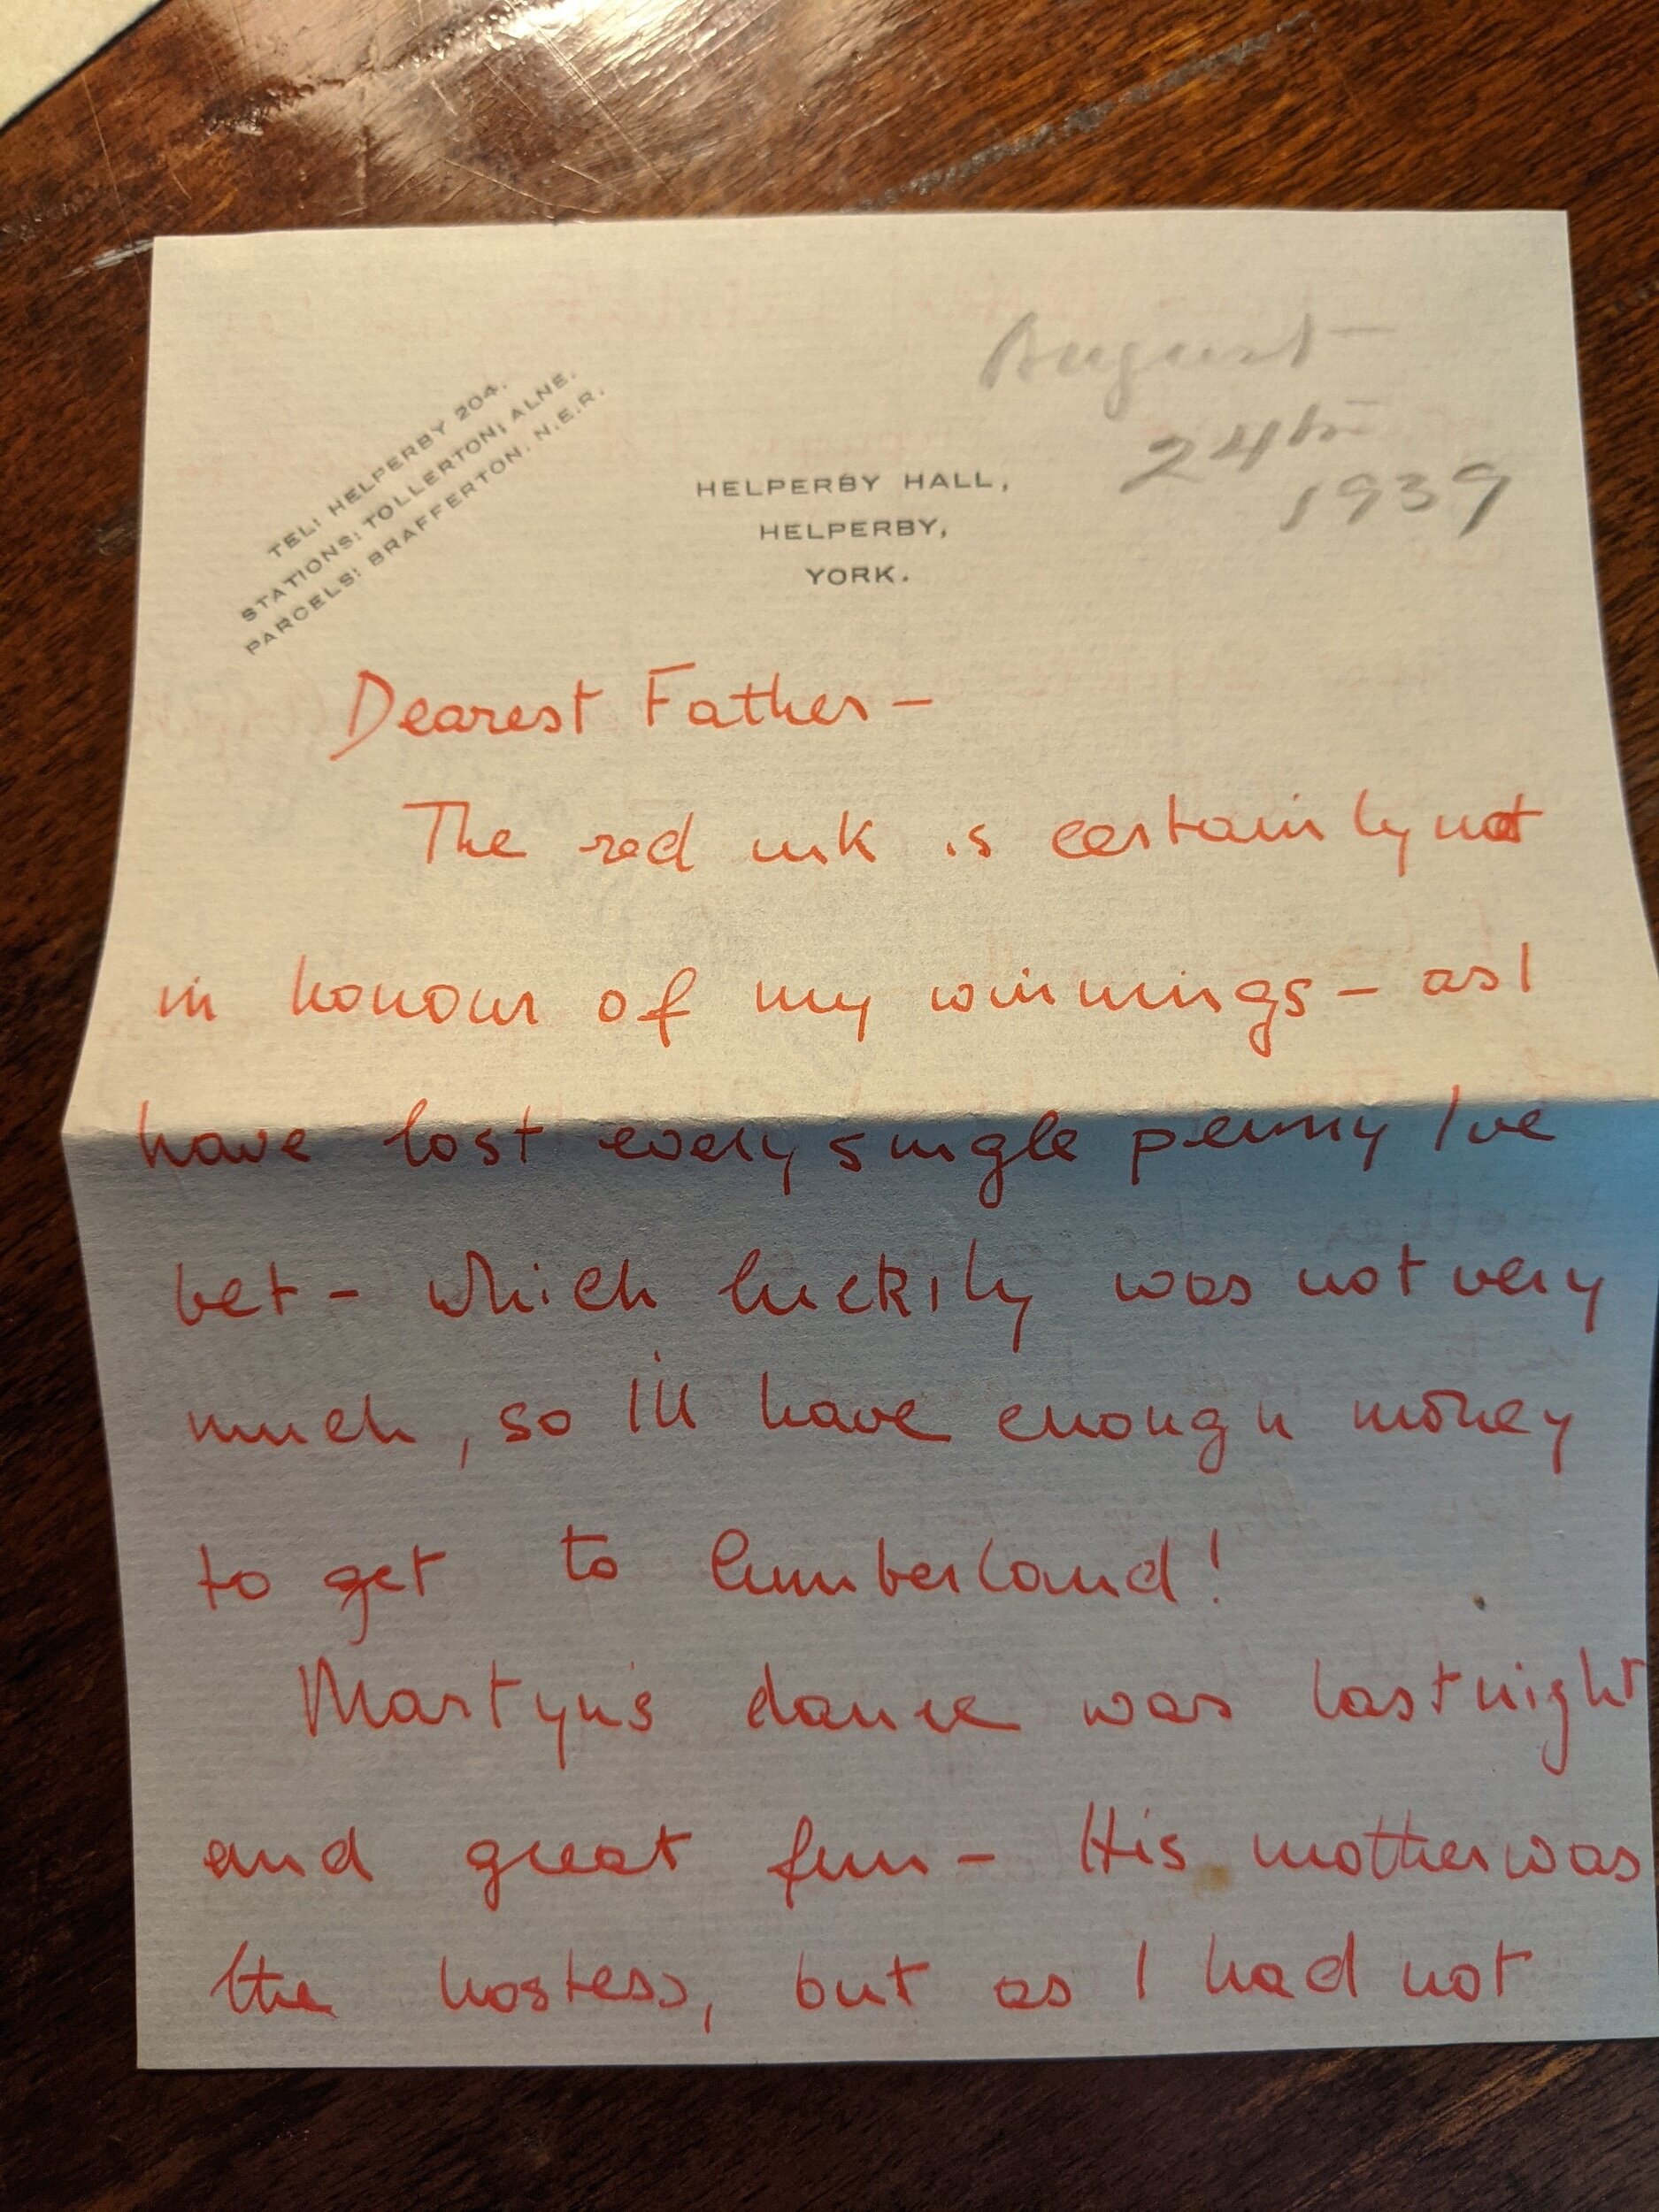 TEL: HELPERBY 204.
STATIONS: TOLLERTON; ALNE.
PARCELS: BRAFFERTON. N.E.R.
HELPERBY HALL,
HELPERBY,
YORK.
August
24th
1939
Dearest Father –
The red ink is certainly not
in honour of my winnings – as I
have lost every single penny I've
bet – which luckily was not very
much, so I'll have enough money
to get to Cumberland!
Martyn's dance was last night
and great fun – His mother was
the hostess, but as I had not